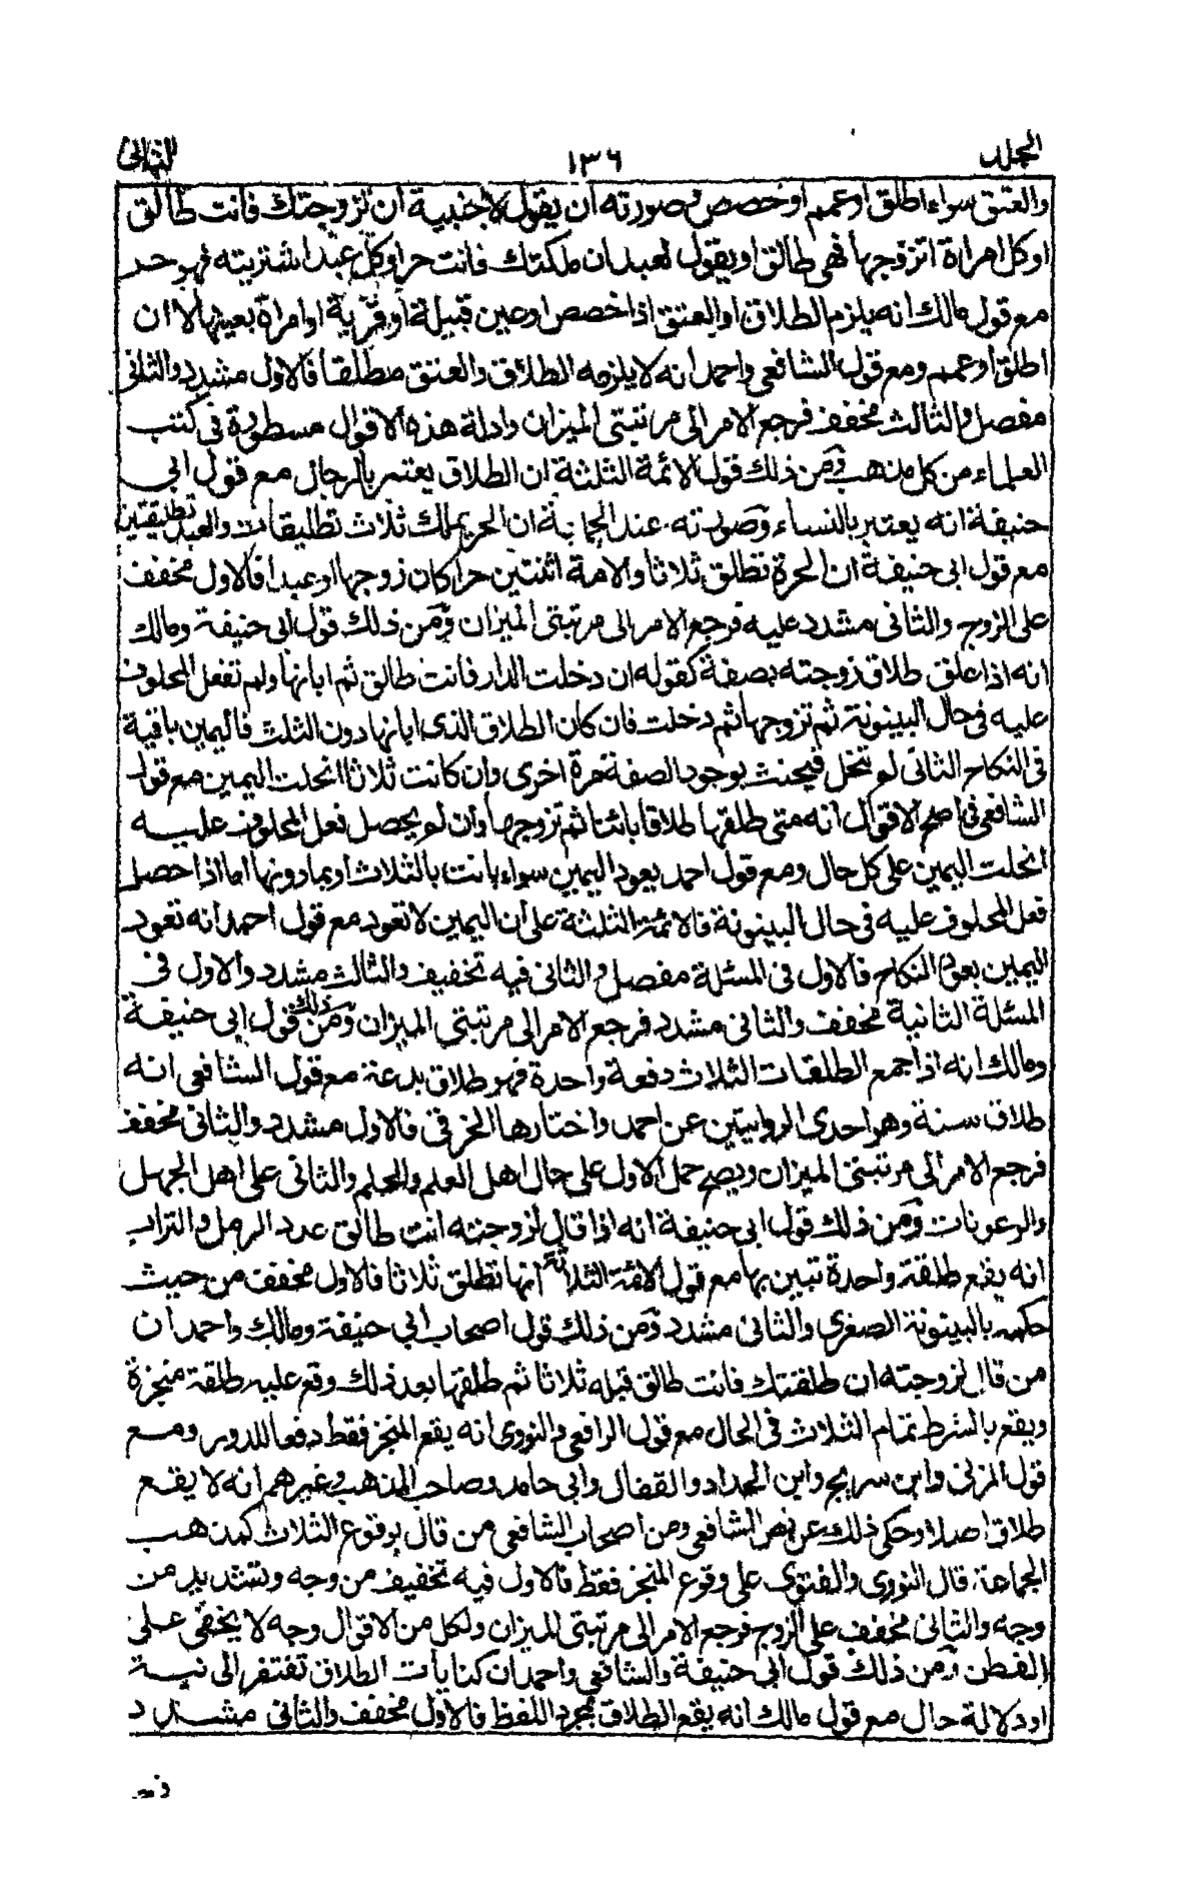 المجلد
١٣٦
الثاني
والعتق سواء اطلق او عمم او خصص وصورته ان يقول لاجنبية ان تزوجتك فانت طالق
او كل امراة اتزوجها فهى طالق او يقول لعبد ان ملكتك فانت حر او كل عبد اشتريته فهو حر
مع قول مالك انه يلزم الطلاق او العتق اذا خصص او عين قبيلة أو قرية او امراة بعينها لا ان
اطلق أو عمم ومع قول الشافعى واحمد انه لا يلزمه الطلاق والعتق مطلقا فالاول مشدد والثانى
مفصل والثالث مخفف فرجع الامر الى مرتبتى الميزان وادلة هذه الاقوال مسطورة فى كتب
العلماء من كل مذهب ومن ذلك قول الائمة الثلثة ان الطلاق يعتبر بالرجال مع قول ابى
حنيفة انه يعتبر بالنساء وصورته عند الجماعة ان الحر يملك ثلاث تطليقات والعبد تطليقتين
مع قول ابى حنيفة ان الحرة تطلق ثلاثا والامة اثنتين حرا كان زوجها او عبدا فالاول مخفف
على الزوج والثانى مشدد عليه فرجع الامر الى مرتبتى الميزان ومن ذلك قول ابى حنيفة ومالك
انه اذا علق طلاق زوجته بصفة كقوله ان دخلت الدار فانت طالق ثم ابانها ولم تفعل المحلوف
عليه فى حال البينونة ثم تزوجها ثم دخلت فان كان الطلاق الذى ابانها دون الثلث فاليمين باقية
فى النكاح الثانى لم تنحل فيحنث بوجود الصفة مرة اخرى وان كانت ثلاثا انحلت اليمين مع قول
الشافعى فى اصح الاقوال انه متى طلقها طلاقا بائنا ثم تزوجها وان لم يحصل فعل المحلوف عليه
انحلت اليمين على كل حال ومع قول احمد يعود اليمين سواء بانت بالثلاث او بما دونها اما اذا حصل
فعل المحلوف عليه فى حال البينونة فالائمة الثلثة على أن اليمين لا تعود مع قول احمد انه تعود
اليمين بعود النكاح فالاول فى المسئلة مفصل والثانى فيه تخفيف والثالث مشدد والاول فى
المسئلة الثانية مخفف والثانى مشدد فرجع الامر الى مرتبتى الميزان ومن ذلك قول ابى حنيفة
ومالك انه اذا جمع الطلقات الثلاث دفعة واحدة فهو طلاق بدعة مع قول الشافعى انه
طلاق سنة وهو احدى الروايتين عن احمد واختارها الخرقى فالاول مشدد والثانى مخفف
فرجع الامر الى مرتبتى الميزان ويصح حمل الاول على حال اهل العلم والحلم والثانى على اهل الجهل
والرعونات ومن ذلك قول ابى حنيفة انه اذا قال لزوجته انت طالق عدد الرمل والتراب
انه يقع طلقة واحدة تبين بها مع قول الائمة الثلاثة انها تطلق ثلاثا فالاول مخفف من حيث
حكمه بالبينونة الصغرى والثانى مشدد ومن ذلك قول اصحاب أبى حنيفة ومالك واحمد ان
من قال لزوجته ان طلقتك فانت طالق قبله ثلاثا ثم طلقها بعد ذلك وقع عليه طلقة منجزة
ويقع بالشرط تمام الثلاث فى الحال مع قول الرافعى والنووى انه يقع المنجز فقط دفعا للدور ومع
قول المزنى وابن سريج وابن الحداد والقفال وابى حامد وصاحب المذهب وغيرهم انه لا يقع
طلاق اصلا وحكى ذلك عن نص الشافعى ومن اصحاب الشافعى من قال بوقوع الثلاث كمذهب
الجماعة قال النووى والفتوى على وقوع المنجز فقط فالاول فيه تخفيف من وجه وتشديد من
وجه والثانى مخفف على الزوج فرجع الامر الى مرتبتى الميزان ولكل من الاقوال وجه لا يخفى على
الفطن ومن ذلك قول ابى حنيفة والشافعى واحمد ان كنايات الطلاق تفتقر الى نية
او دلالة حال مع قول مالك انه يقع الطلاق بمجرد اللفظ فالاول مخفف والثانى مشدد